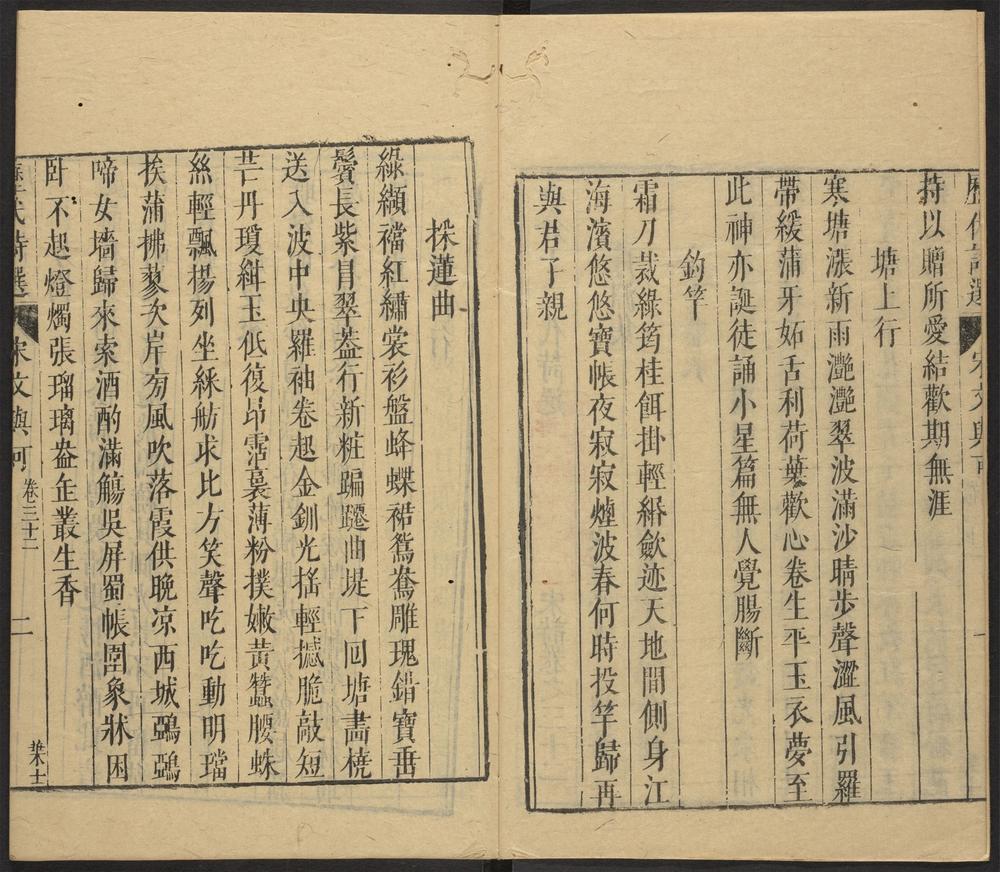 歷代詩選 宋文與可 一
持以贈所愛結歡期無涯
塘上行
寒塘漲新雨灧灧翠波滿沙晴步聲澀風引羅
帶緩蒲牙妬舌利荷葉歡心卷生平玉衣夢至
此神亦誕徒誦小星篇無人覺腸斷
釣竿
霜刀裁綠筠桂餌掛輕緡斂迹天地間側身江
海濱悠悠寶帳夜寂寂煙波春何時投竿歸再
與君子親
採蓮曲
綠纈襠紅繡裳衫盤蜂蝶裙鴛鴦雕瑰錯寶垂
鬢長紫肩翠蓋行新粧蹁躚曲堤下回塘畵橈
送入波中央羅袖卷起金釧光搖輕撼脆敲短
芒丹瓊紺玉低復昂霑裛薄粉撲嫩黃蠶腰蛛
絲輕飄揚列坐綵舫求比方笑聲吃吃動明璫
挨蒲拂蓼次岸旁風吹落霞供晚凉西城鵶鵶
啼女墻歸來索酒酌滿觴吳屏蜀帳圍象牀困
卧不起燈燭張瑠璃盎缶叢生香
歷代詩選 宋文與可 卷三十二 二 集十